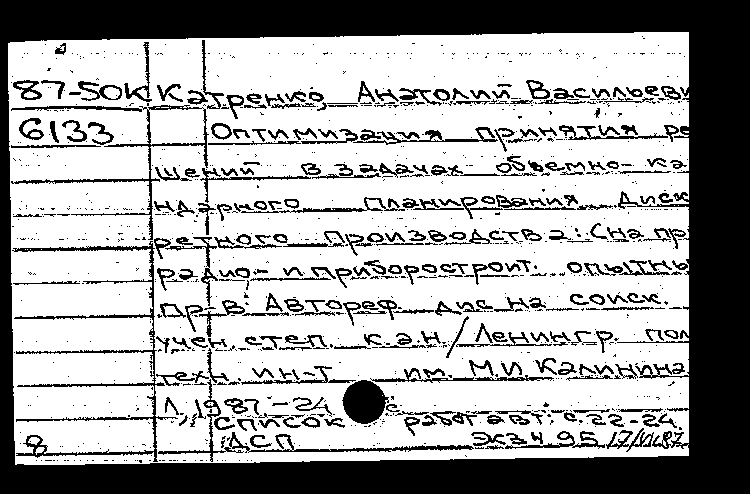 87-50К Катренко, Анатолий Васильеви
6133 Оптимизация принятия ре
шений в задачах объемно-ка
ндарного планирования диск
ретного производства: (на пр
радио- и приборостроит. опытны
пр-в. Автореф дис на соиск.
учен. степ. к.э.н/Ленингр. пол
техн. ин-т им. М.И. Калинина
Л, 1987 - 24 с
список работ авт: с. 22-24.
8 ДСП Экз № 95 17/VI-87